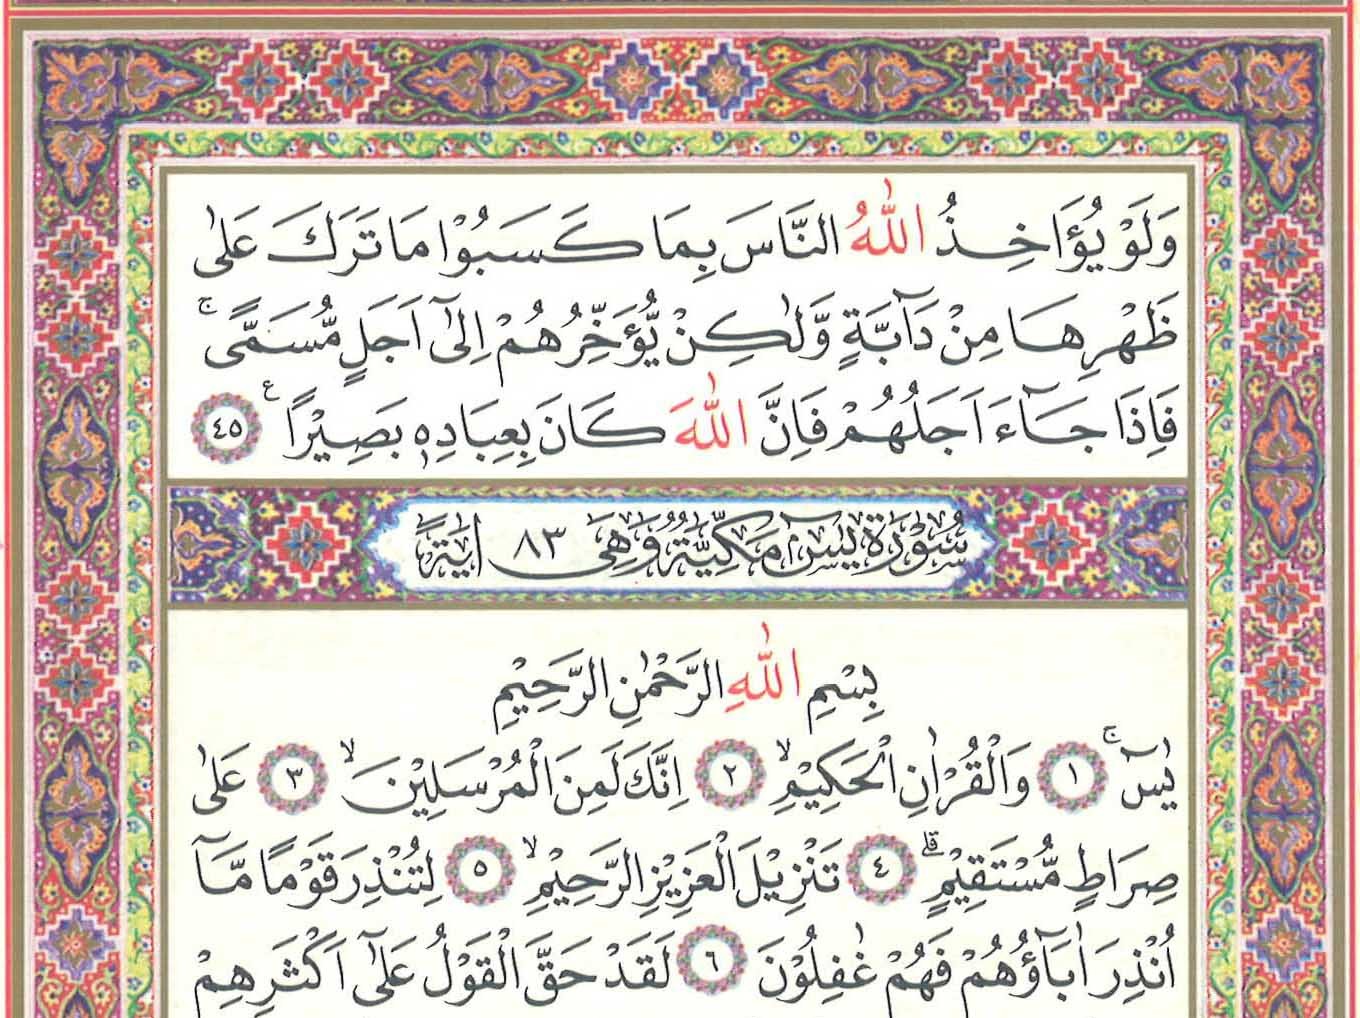 وَلَوْ يُؤَاخِذُ اللّٰهُ النَّاسَ بِمَا كَسَبُوْا مَا تَرَكَ عَلٰى
ظَهْرِهَا مِنْ دَٓابَّةٍ وَّلٰكِنْ يُّؤَخِّرُهُمْ اِلٰٓى اَجَلٍ مُّسَمًّى ۚ
فَاِذَا جَٓاءَ اَجَلُهُمْ فَاِنَّ اللّٰهَ كَانَ بِعِبَادِهٖ بَصِيْرًا ع ٤٥
سُوْرَةُ يٰسٓ مَكِّيَّةٌ وَهِىَ ٨٣ اٰيَةً
بِسْمِ اللّٰهِ الرَّحْمٰنِ الرَّحِيْمِ
يٰسٓ ۚ ١ وَالْقُرْاٰنِ الْحَكِيْمِ ۙ ٢ اِنَّكَ لَمِنَ الْمُرْسَلِيْنَ ۙ ٣ عَلٰى
صِرَاطٍ مُّسْتَقِيْمٍ ۗ ٤ تَنْزِيْلَ الْعَزِيْزِ الرَّحِيْمِ ۙ ٥ لِتُنْذِرَ قَوْمًا مَّٓا
اُنْذِرَ اٰبَٓاؤُهُمْ فَهُمْ غٰفِلُوْنَ ٦ لَقَدْ حَقَّ الْقَوْلُ عَلٰٓى اَكْثَرِهِمْ